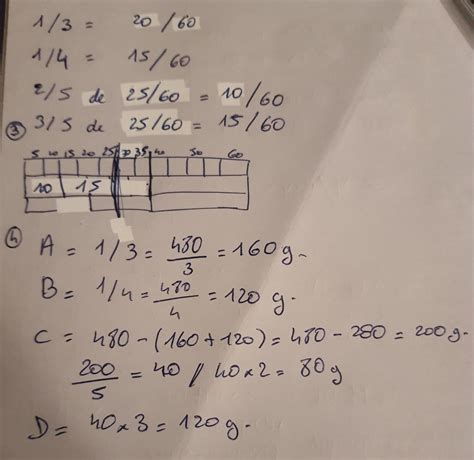 1/3 = 20/60
1/4 = 15/60
2/5 de 25/60 = 10/60
③ 3/5 de 25/60 = 15/60
5 10 15 20 25 30 35 40 50 60
10 15
④ A = 1/3 = 480/3 = 160 g.
B = 1/4 = 480/4 = 120 g.
C = 480 - (160 + 120) = 480 - 280 = 200 g.
200/5 = 40 // 40 x 2 = 80 g
D = 40 x 3 = 120 g.